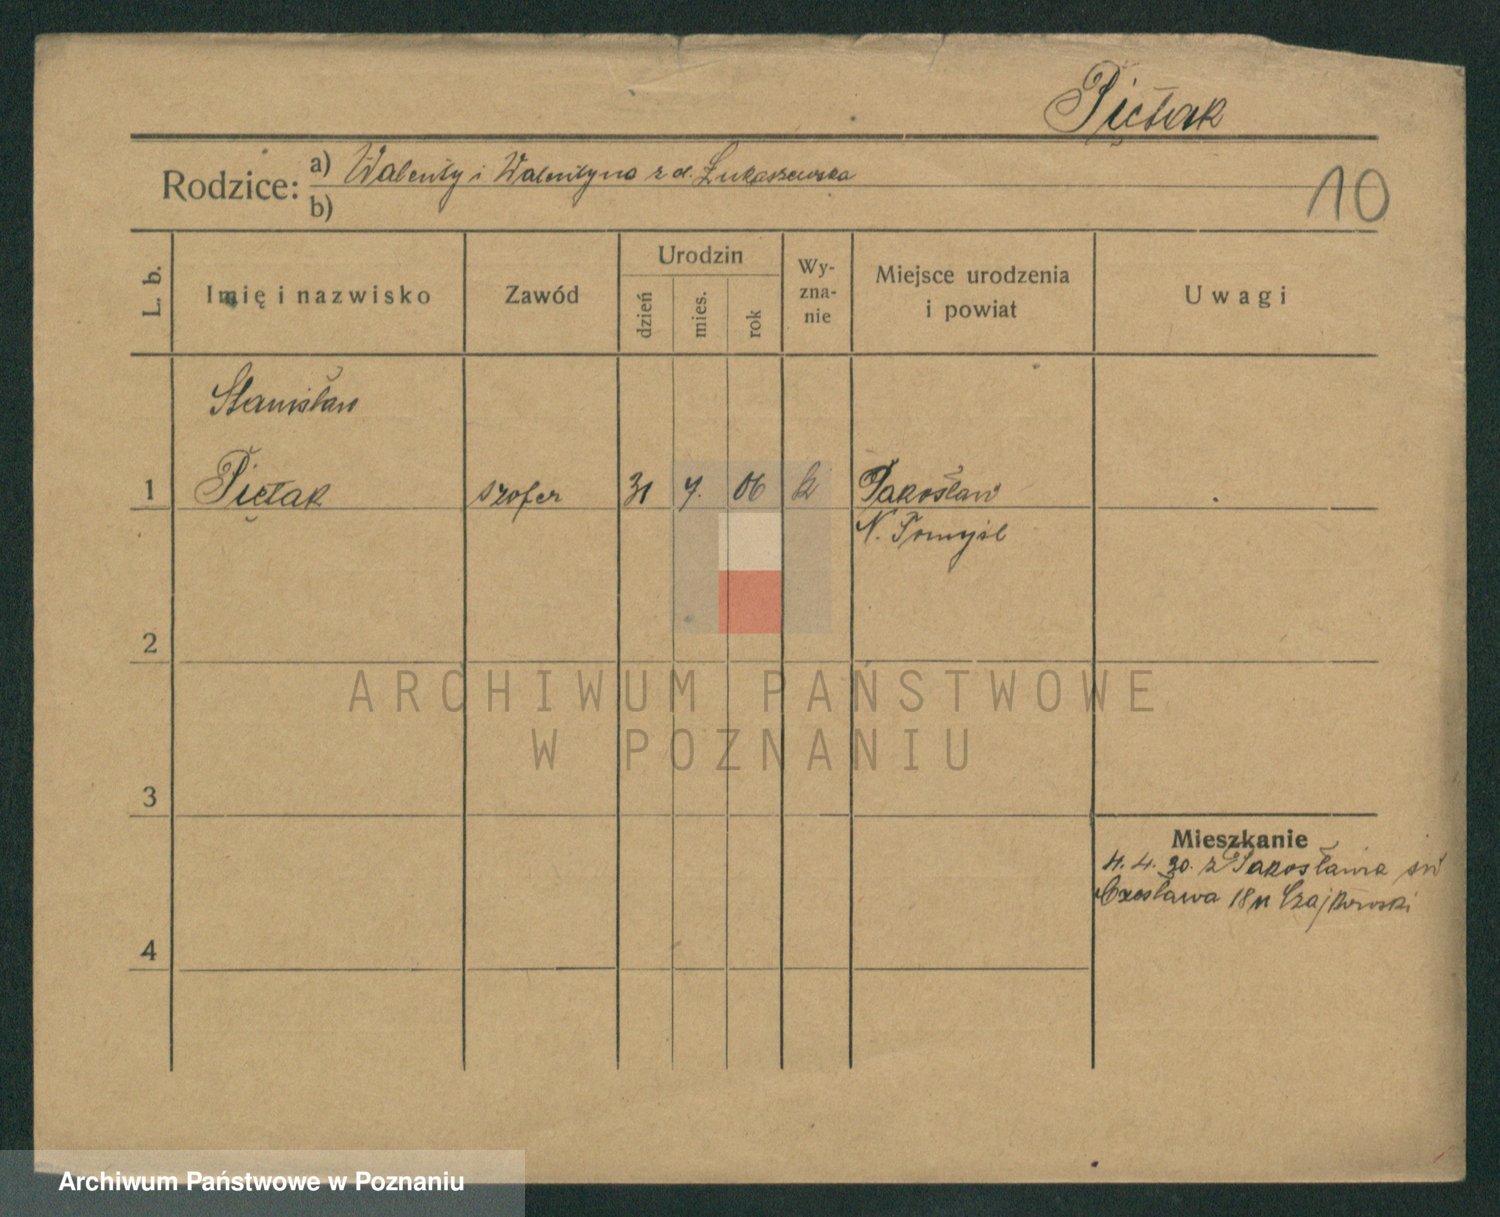 Piętak
Rodzice: a) Walenty i Walentyna z d. Łukaszewska
b)
10
L. b.
Imię i nazwisko
Zawód
Urodzin
dzień
mies.
rok
Wy-
zna-
nie
Miejsce urodzenia
i powiat
Uwagi
Stanisław
1 Piętak szofer 31 7. 06 k
N. Tomyśl
2
ARCHIWUM PAŃSTWOWE
W POZNANIU
3
Mieszkanie
4. 30. z
Czesława 18 Czajkowski
4
Archiwum Państwowe w Poznaniu